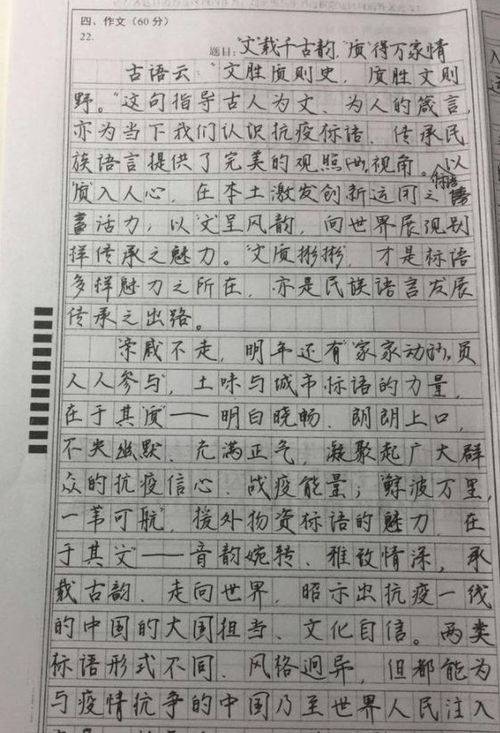 四、作文(60分)
22.
题目："文"载千古韵，"质"得万家情
古语云："文胜质则史，质胜文则
野。"这句指导古人为文、为人的箴言，
亦为当下我们认识抗疫标语、传承民
族语言提供了完美的观照两视角。以
"质"入人心，在本土激发创新运用之标语
活力；以"文"呈风韵，向世界展现别
样传承之魅力。"文质彬彬"，才是标语
多样魅力之所在，亦是民族语言发展
传承之出路。
"亲戚不走，明年还有""家家动员，
人人参与"，土味与城市标语的力量，
在于其"质"——明白晓畅、朗朗上口，
不失幽默、充满正气，凝聚起广大群
众的抗疫信心、战疫能量；"鲸波万里，
一苇可航"，援外物资标语的魅力，在
于其"文"——音韵婉转、雅致情深，承
载古韵、走向世界，昭示出抗疫一线
的中国的大国担当、文化自信。两类
标语形式不同、风格迥异，但都能为
与疫情抗争的中国乃至世界人民注入